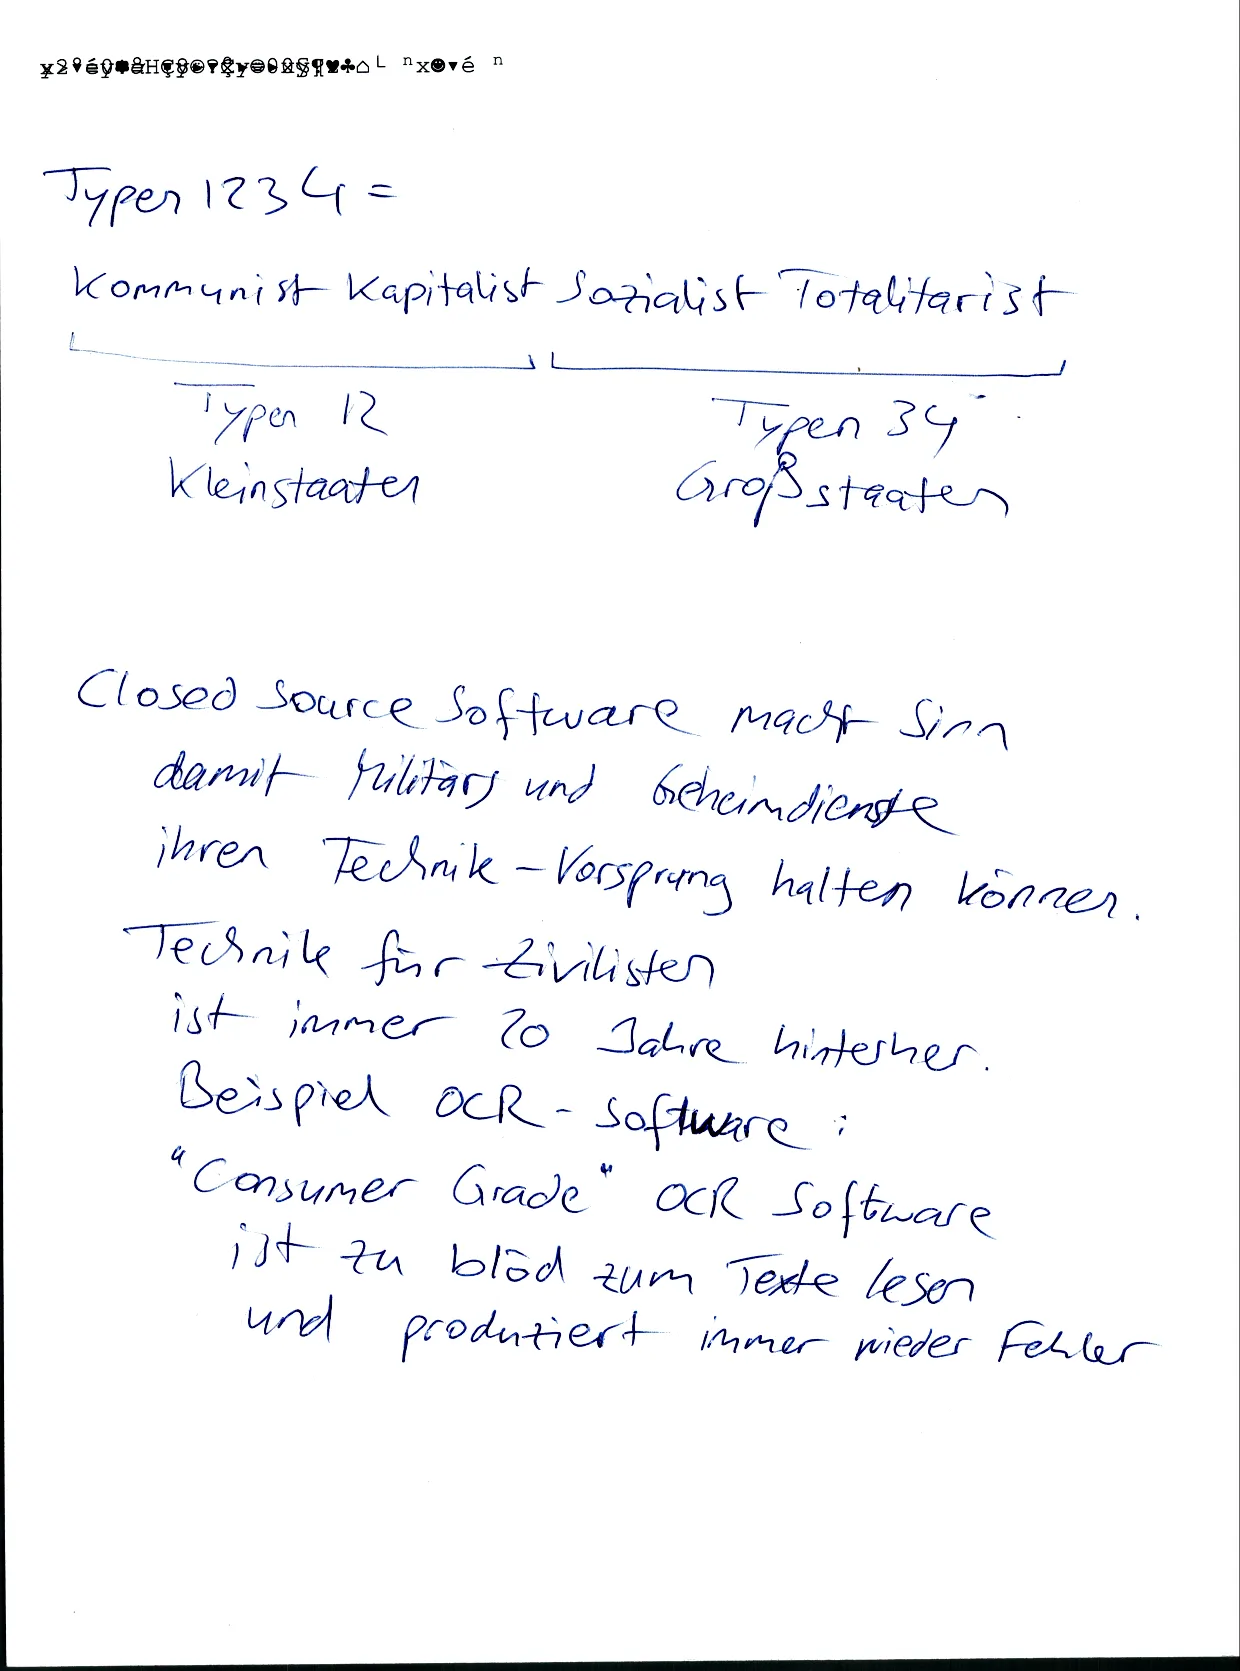 Typen 1234 =
Kommunist Kapitalist Sozialist Totalitarist
Typen 12 Typen 34
Kleinstaaten Großstaaten
Closed Source Software macht Sinn
damit Militärs und Geheimdienste
ihren Technik-Vorsprung halten können.
Technik für Zivilisten
ist immer 20 Jahre hinterher.
Beispiel OCR-Software:
"Consumer Grade" OCR Software
ist zu blöd zum Texte lesen
und produziert immer wieder Fehler